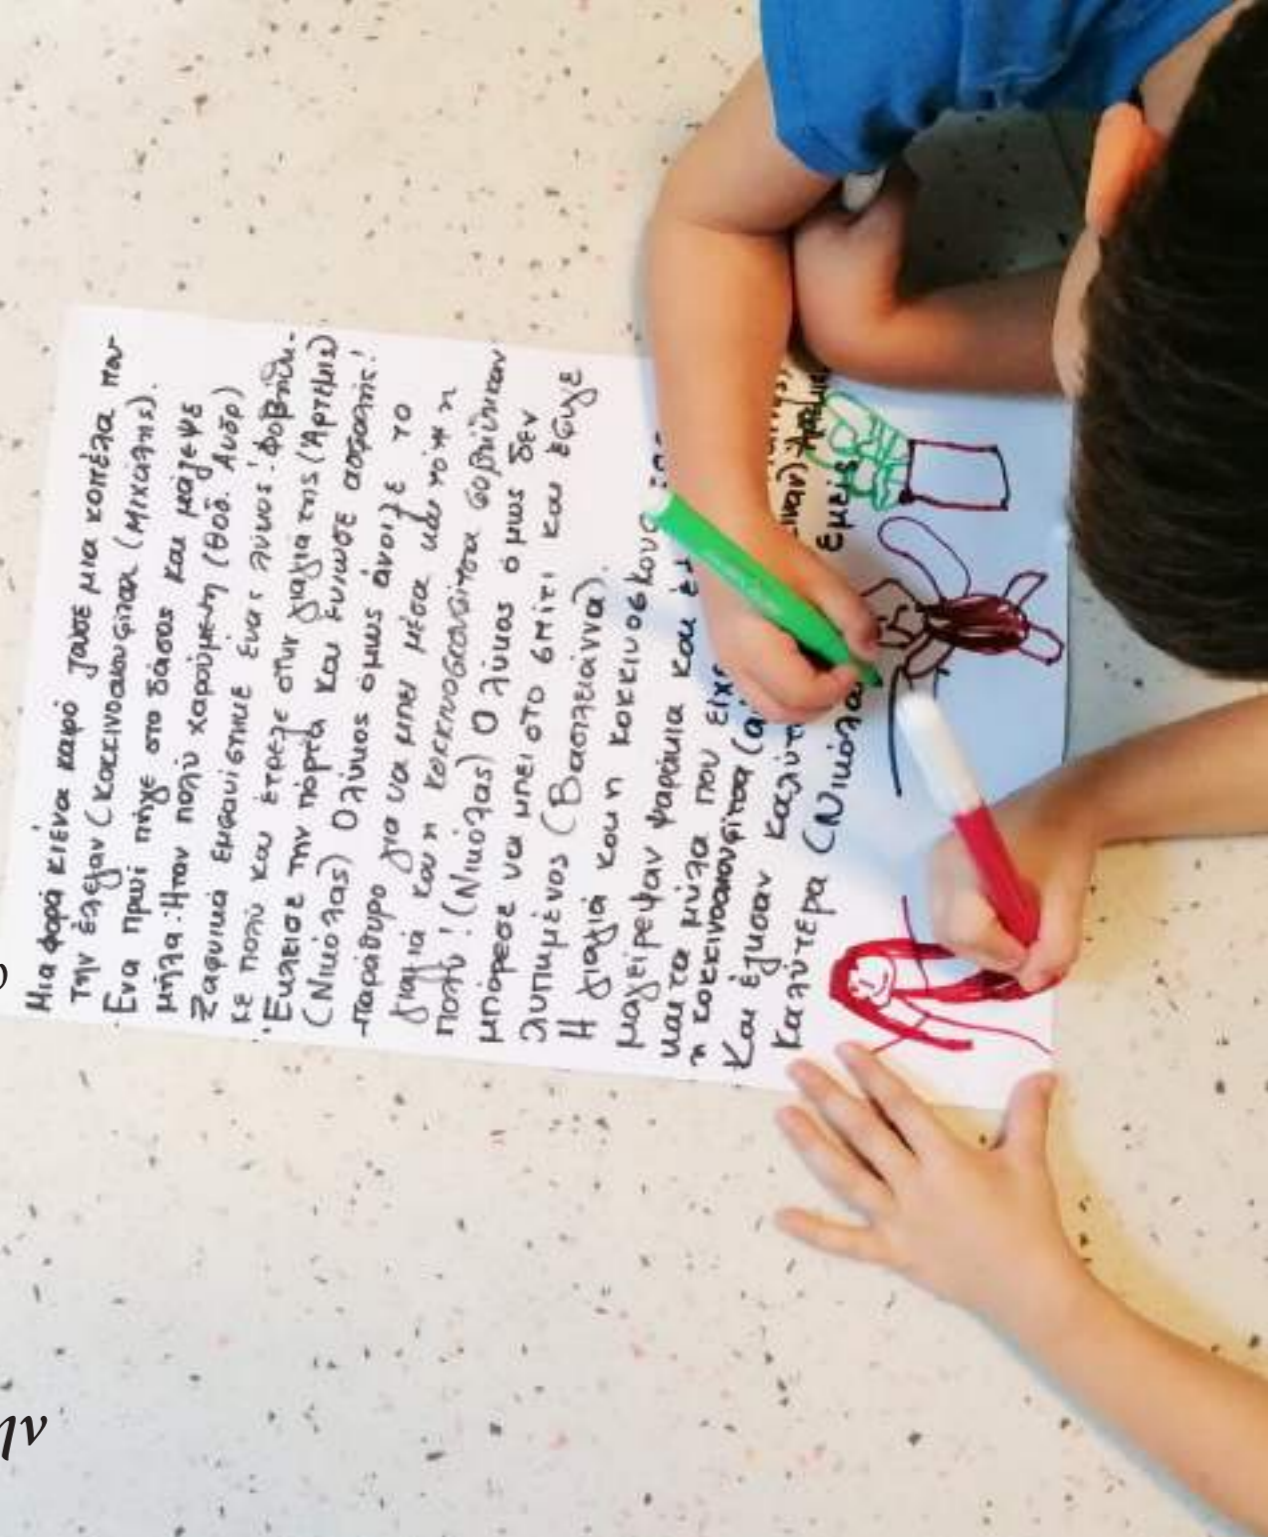 Μια φορά κι ένα καιρό ζούσε μια κοπέλα που
την έλεγαν (κοκκινοσκουφίτσα (Μιχάλης).
Ένα πρωί πήγε στο δάσος και μάζεψε
μήλα. Ήταν πολύ χαρούμενη (Θοδ. Ανδρ)
Ξαφνικά εμφανίστηκε ένας λύκος. Φοβήθη-
κε πολύ και έτρεξε στην γιαγιά της (Άρτεμις)
Έκλεισε την πόρτα και ένιωσε ασφαλής!
(Νικόλας) Ο λύκος όμως άνοιξε το
παράθυρο για να μπει μέσα και τότε η
γιαγιά και η κοκκινοσκουφίτσα φοβήθηκαν
πολύ! (Νικόλας) Ο λύκος όμως δεν
μπόρεσε να μπει στο σπίτι και έφυγε
λυπημένος (Βασιλειάννα).
Η γιαγιά και η κοκκινοσκου
μαγείρεψαν ψαράκια και
και τα μήλα που είχε
η κοκκινοσκουφίτσα
Και έζησαν καλά
εμείς
καλύτερα (Νικόλα
ην